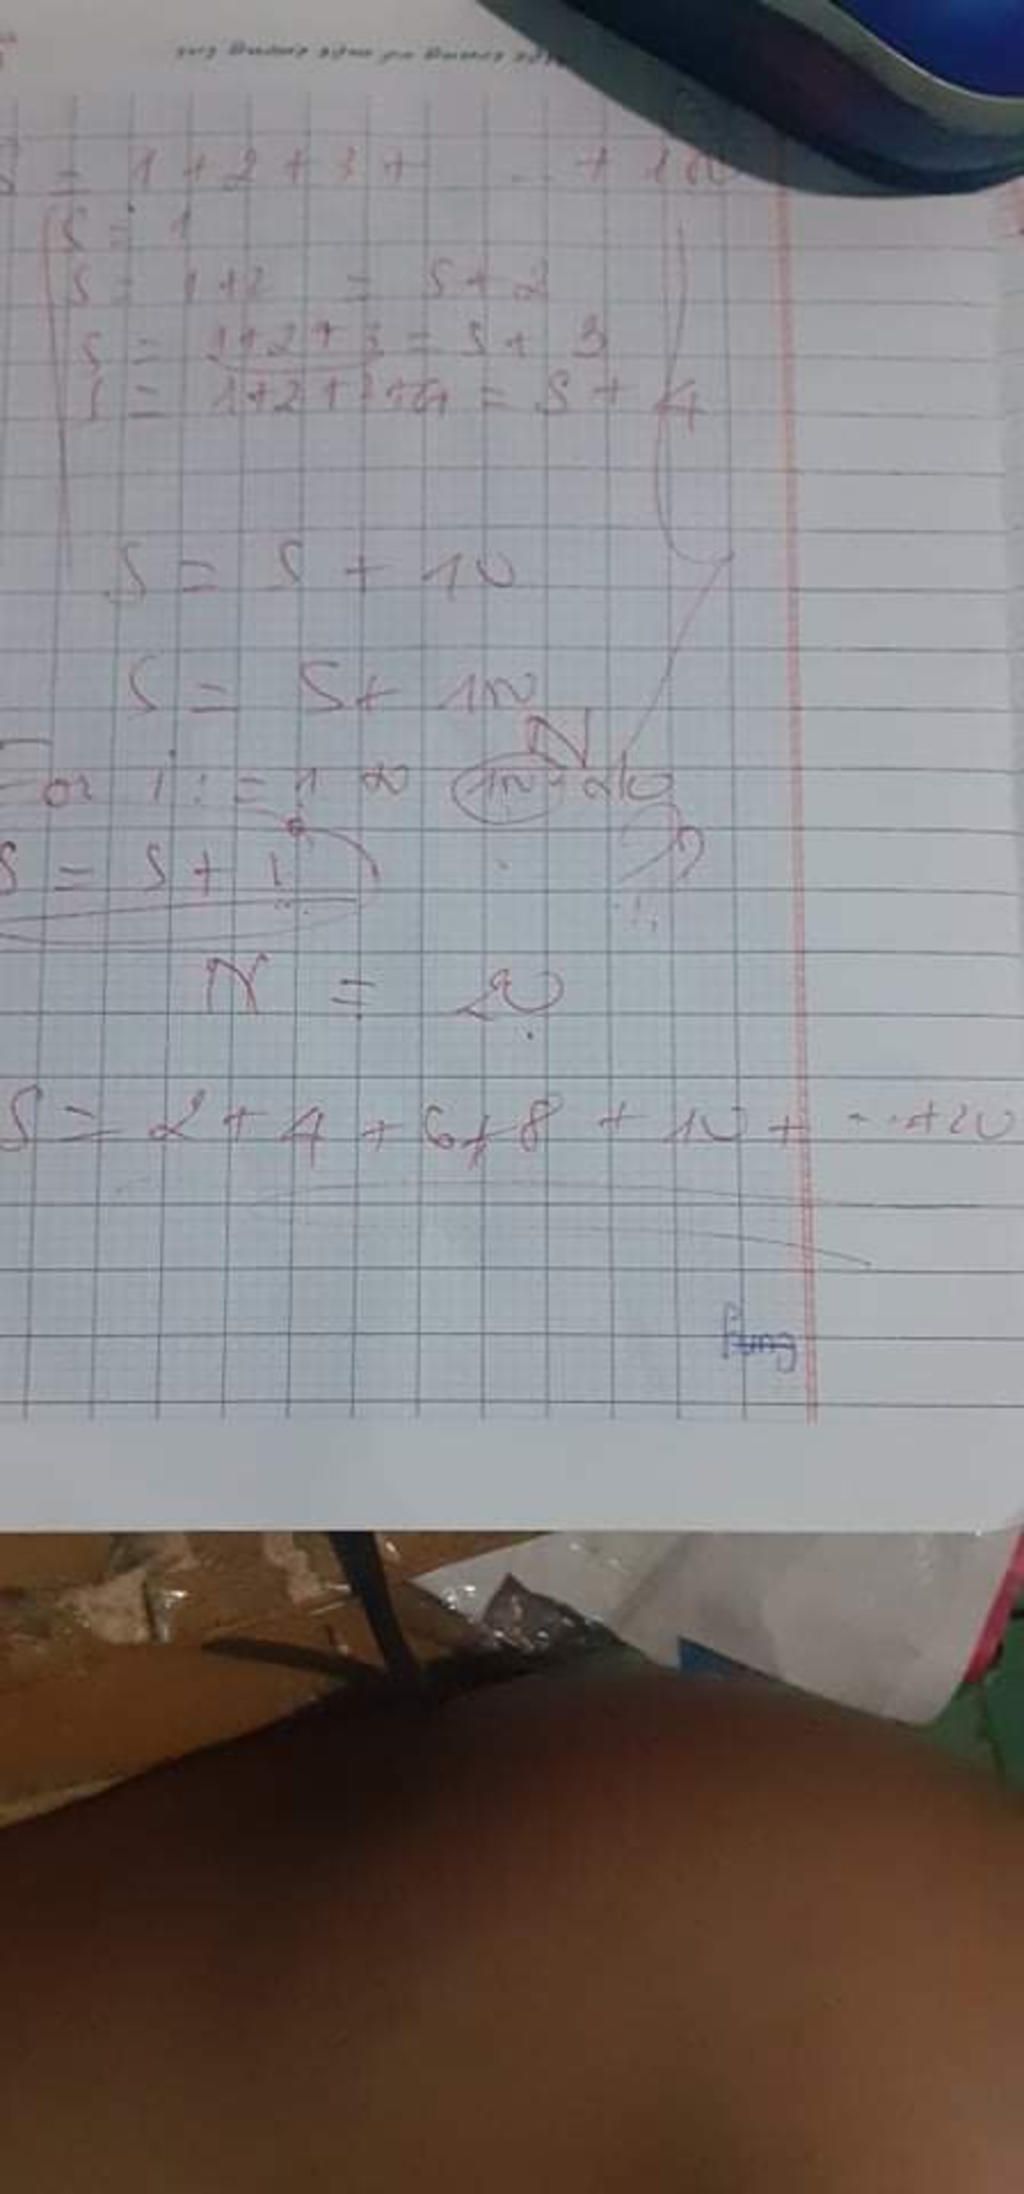 S = 1 + 2 + 3 + ... + 100
S = 1
S = 1+2 = S + 2
S = 1+2+3 = S + 3
S = 1+2+3+4 = S + 4
S = S + 10
S = S + 100
N
For i := 1 to 100 do
S = S + i
N = 20
S = 2 + 4 + 6 + 8 + 10 + ... + 20